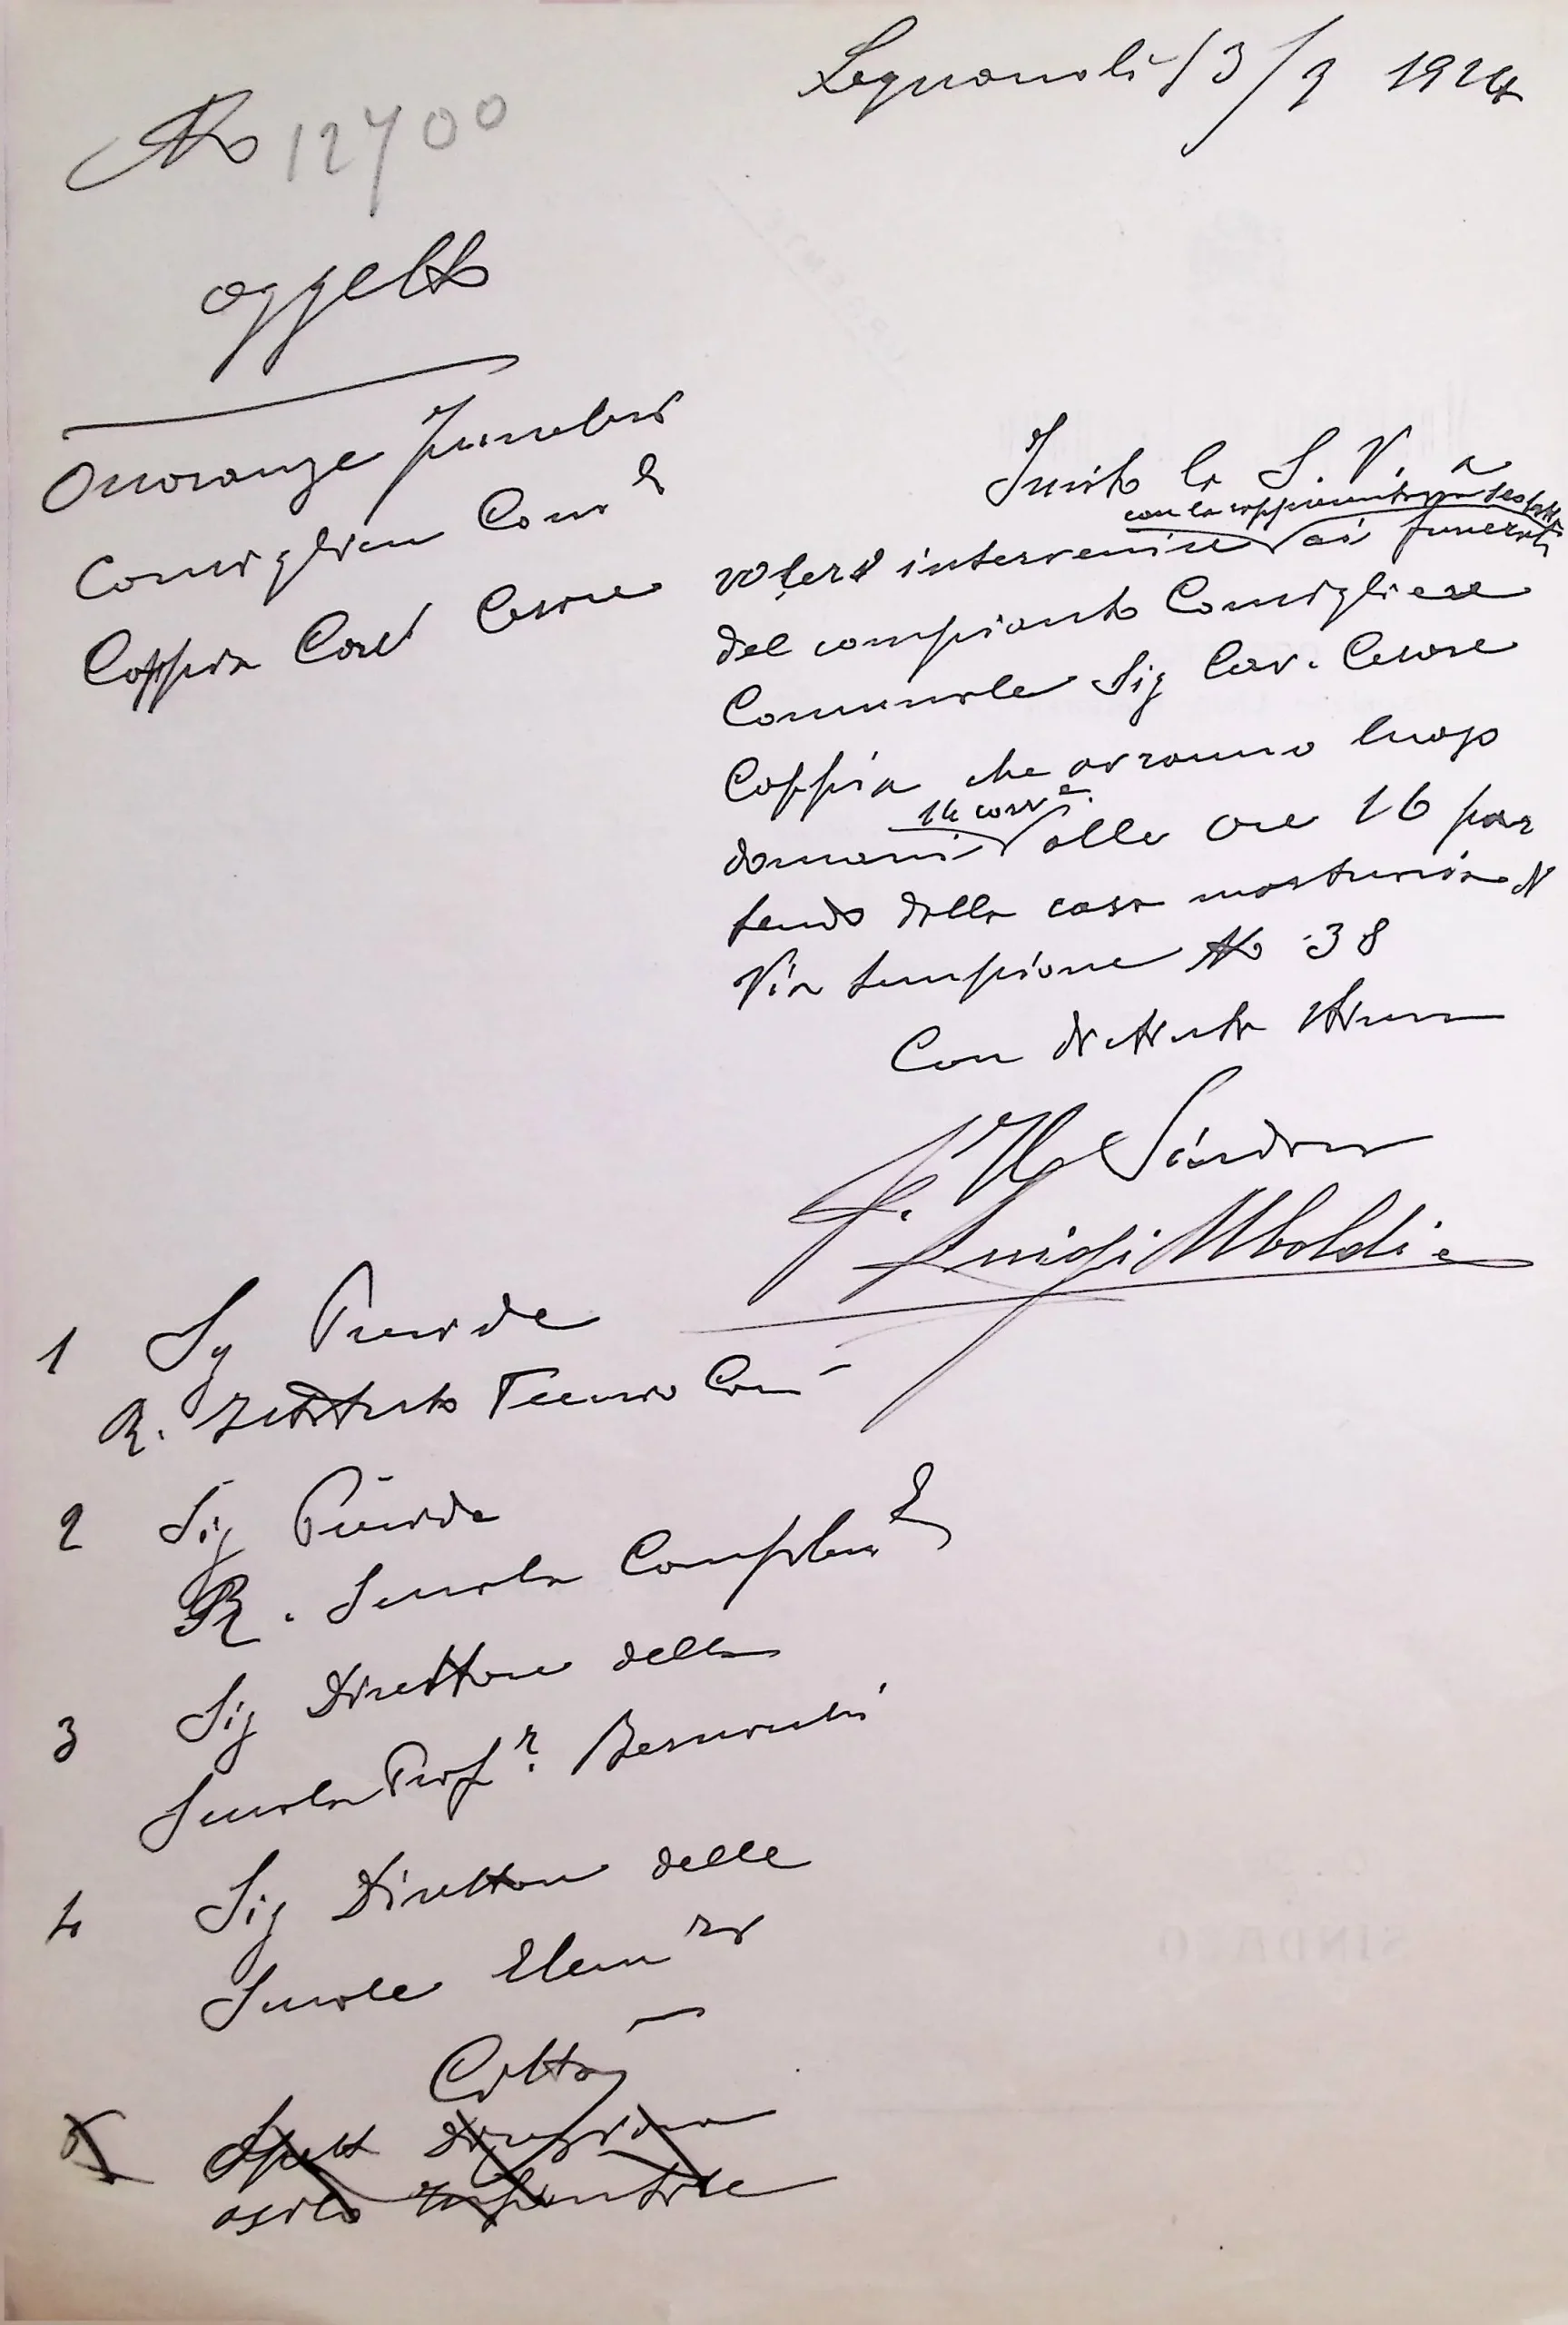 Legnano li 13/9 1924
No 12700
oggetto
Onoranze funebri
Consigliere Com.le
Coppia Cav. Cesare
Invito la S. V. a
con la rappresentanza scolastica
volere intervenire ai funerali
del compianto Consigliere
Comunale Sig Cav. Cesare
Coppia che avranno luogo
14 corr.e
domani alle ore 16 par
tendo dalla casa mortuaria
Via Sempione No 38
Con distinta stima
Il Sindaco
f. Luigi Uboldi
1 Sig Preside
R. Istituto Tecnico Com
2 Sig Preside
R. Scuola Complem
3 Sig Direttore della
Scuola Prof.e Bernocchi
4 Sig Direttore delle
Scuole Elem.ri
Città
5 Spett Direzione
asilo Infantile
SINDACO